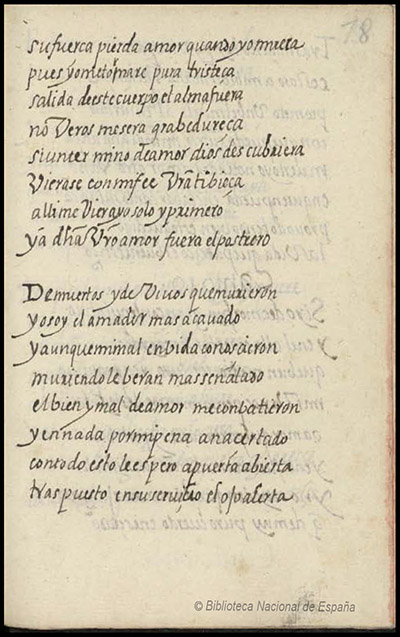 18
su fuerça pierda amor quando yo muera
pues yo me tornare pura tristeça
salida de este cuerpo el alma fuera
no Veros me sera grabe dureça
si un termino de amor dios descubriera
Vierase con mi fee Vra tibieça
alli me Viera yo solo y primero
ya dha Vro amor fuera el postrero
De muertos y de Vivos que murieron
yo soy el amador mas acavado
y aunque mi mal en bida conosieron
muriendo le beran mas señalado
el bien y mal de amor me conbatieron
y en nada por mi pena an acertado
con todo esto le espero a puerta abierta
tras puesto en su serviçio el ojo alerta
© Biblioteca Nacional de España